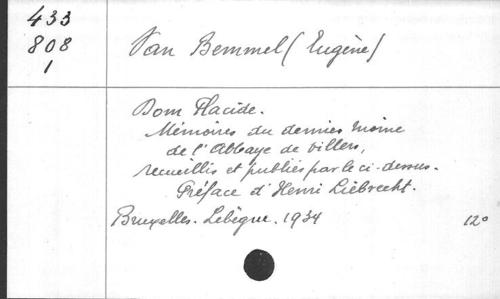 433
808
1
Van Bemmel (Eugène)
Dom Placide.
Mémoires du dernier moine
de l'Abbaye de Villers,
recueillis et publiés par le ci-dessus.
Préface d'Henri Liebrecht.
Bruxelles. Lebègue. 1934
12°